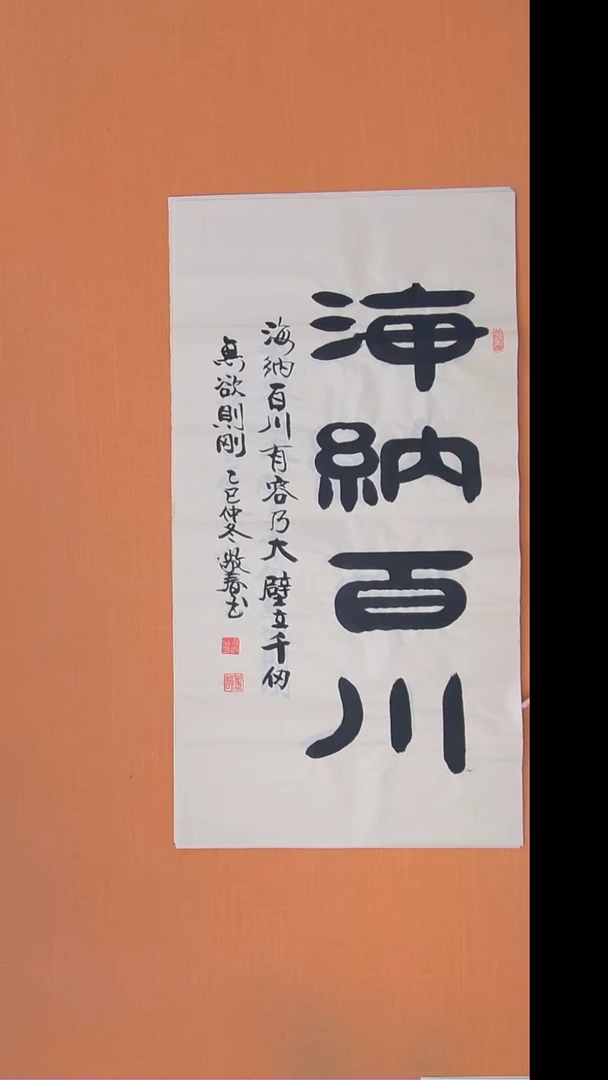 海納百川
海納百川有容乃大壁立千仞
無欲則刚乙巳仲冬敬春书